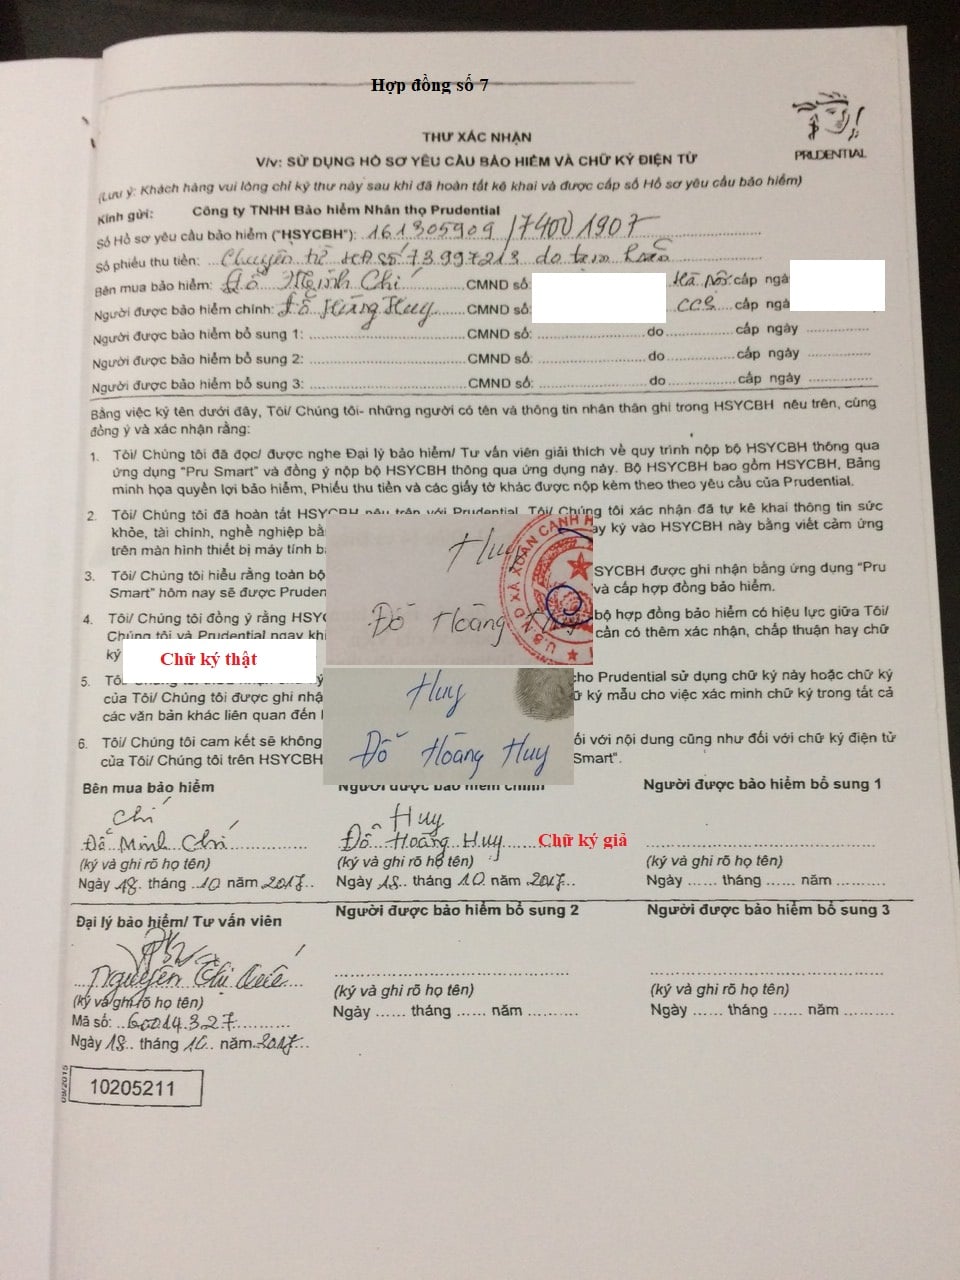 Hợp đồng số 7
THƯ XÁC NHẬN
V/v: SỬ DỤNG HỒ SƠ YÊU CẦU BẢO HIỂM VÀ CHỮ KÝ ĐIỆN TỬ
PRUDENTIAL
(Lưu ý: Khách hàng vui lòng chỉ ký thư này sau khi đã hoàn tất kê khai và được cấp số Hồ sơ yêu cầu bảo hiểm)
Kính gửi: Công ty TNHH Bảo hiểm Nhân thọ Prudential
Số Hồ sơ yêu cầu bảo hiểm ("HSYCBH"): 161305909 /74001907
Số phiếu thu tiền: Chuyển từ HĐ số 73997213 do
Bên mua bảo hiểm: Đỗ Minh Chí CMND số: Hà Nội cấp ngà
Người được bảo hiểm chính: Đỗ Hoàng Huy CMND số: CCS cấp ngà
Người được bảo hiểm bổ sung 1: CMND số: do cấp ngày
Người được bảo hiểm bổ sung 2: CMND số: do cấp ngày
Người được bảo hiểm bổ sung 3: CMND số: do cấp ngày
Bằng việc ký tên dưới đây, Tôi/ Chúng tôi- những người có tên và thông tin nhân thân ghi trong HSYCBH nêu trên, cùng
đồng ý và xác nhận rằng:
1. Tôi/ Chúng tôi đã đọc/ được nghe Đại lý bảo hiểm/ Tư vấn viên giải thích về quy trình nộp bộ HSYCBH thông qua
ứng dụng "Pru Smart" và đồng ý nộp bộ HSYCBH thông qua ứng dụng này. Bộ HSYCBH bao gồm HSYCBH, Bảng
minh họa quyền lợi bảo hiểm, Phiếu thu tiền và các giấy tờ khác được nộp kèm theo theo yêu cầu của Prudential.
2. Tôi/ Chúng tôi đã hoàn tất HSYCBH nêu trên với Prudential. Tôi/ Chúng tôi xác nhận đã tự kê khai thông tin sức
khỏe, tài chính, nghề nghiệp bằ ay ký vào HSYCBH này bằng viết cảm ứng
trên màn hình thiết bị máy tính b
3. Tôi/ Chúng tôi hiểu rằng toàn bộ SYCBH được ghi nhận bằng ứng dụng "Pru
Smart" hôm nay sẽ được Pruden và cấp hợp đồng bảo hiểm.
4. Tôi/ Chúng tôi đồng ý rằng HSYC bộ hợp đồng bảo hiểm có hiệu lực giữa Tôi/
Chúng tôi và Prudential ngay khi cần có thêm xác nhận, chấp thuận hay chữ
ký
Huy
Đỗ Hoàng Huy
U.B.N.D XÃ XUÂN CANH H
Chữ ký thật
5. Tôi/ Chúng tôi cho Prudential sử dụng chữ ký này hoặc chữ ký
của Tôi/ Chúng tôi được ghi nhậ ữ ký mẫu cho việc xác minh chữ ký trong tất cả
các văn bản khác liên quan đến
Huy
Đỗ Hoàng Huy
6. Tôi/ Chúng tôi cam kết sẽ không ối với nội dung cũng như đối với chữ ký điện tử
của Tôi/ Chúng tôi trên HSYCBH Smart".
Bên mua bảo hiểm Người được bảo hiểm chính Người được bảo hiểm bổ sung 1
Chí Huy
Đỗ Minh Chí Đỗ Hoàng Huy Chữ ký giả
(ký và ghi rõ họ tên) (ký và ghi rõ họ tên) (ký và ghi rõ họ tên)
Ngày 18 tháng 10 năm 2017 Ngày 18 tháng 10 năm 2017 Ngày ...... tháng ...... năm
Đại lý bảo hiểm/ Tư vấn viên Người được bảo hiểm bổ sung 2 Người được bảo hiểm bổ sung 3
Nguyễn Thị
(ký và ghi rõ họ tên) (ký và ghi rõ họ tên) (ký và ghi rõ họ tên)
Mã số: 60014327 Ngày ...... tháng ...... năm Ngày ...... tháng ...... năm
Ngày 18 tháng 10 năm 2017
09/2015
10205211